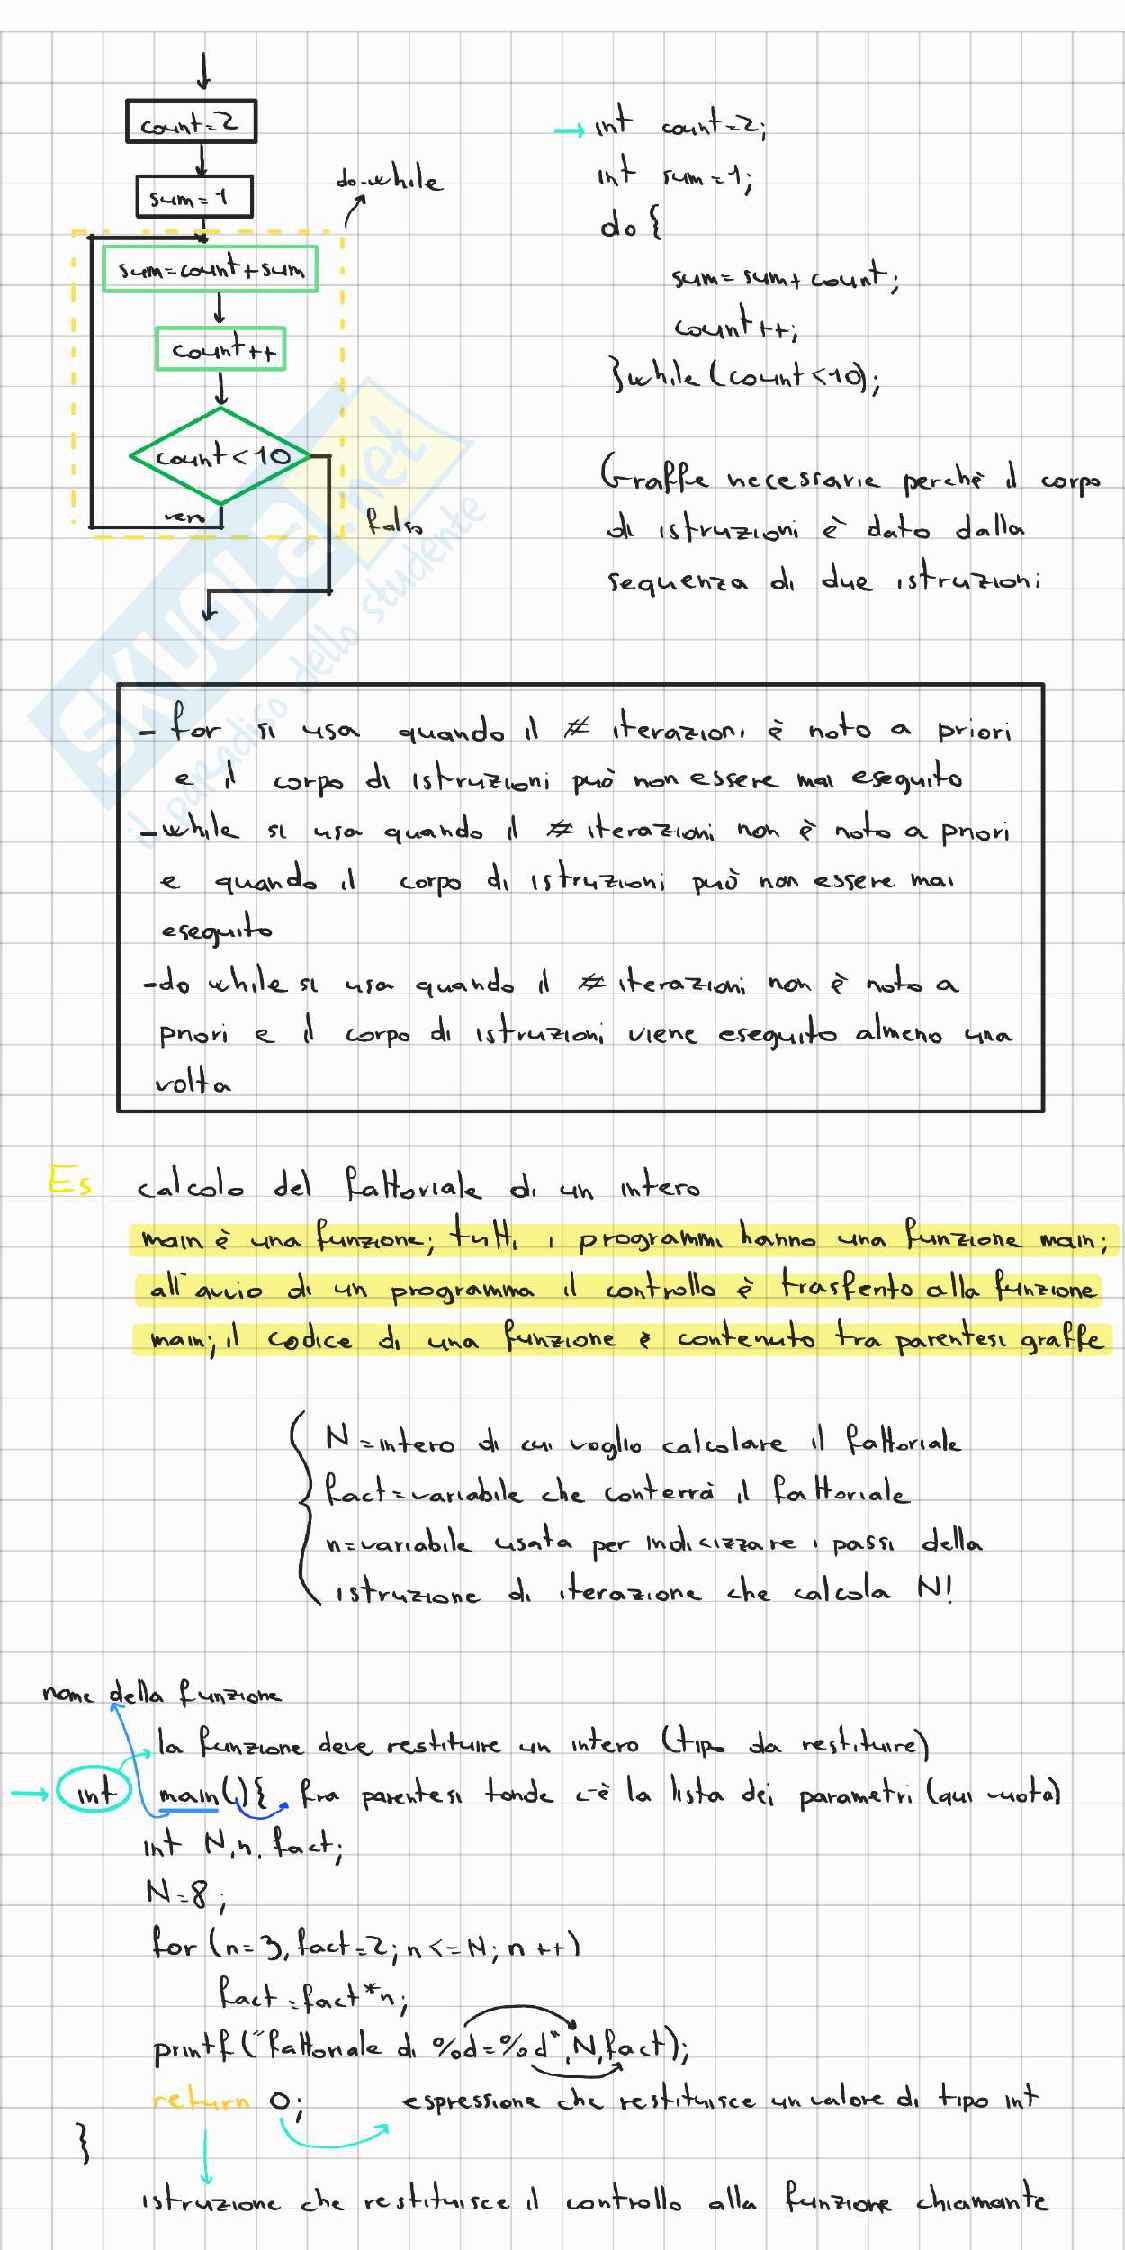 count=2
sum=1
do-while
sum=count+sum
count++
count<10
vero
falso
int count=2;
int sum=1;
do {
sum=sum+count;
count++;
}while(count<10);
Graffe necessarie perchè il corpo
di istruzioni è dato dalla
sequenza di due istruzioni
SKUOLA.net
il paradiso dello studente
- for si usa quando il # iterazioni è noto a priori
e il corpo di istruzioni può non essere mai eseguito
-while si usa quando il # iterazioni non è noto a priori
e quando il corpo di istruzioni può non essere mai
eseguito
-do while si usa quando il # iterazioni non è noto a
priori e il corpo di istruzioni viene eseguito almeno una
volta
Es calcolo del fattoriale di un intero
main è una funzione; tutti i programmi hanno una funzione main;
all'avvio di un programma il controllo è trasferito alla funzione
main; il codice di una funzione è contenuto tra parentesi graffe
N=intero di cui voglio calcolare il fattoriale
fact=variabile che conterrà il fattoriale
n=variabile usata per indicizzare i passi della
istruzione di iterazione che calcola N!
nome della funzione
la funzione deve restituire un intero (tipo da restituire)
int main(){ fra parentesi tonde c'è la lista dei parametri (qui vuota)
int N,n,fact;
N=8;
for(n=3,fact=2;n<=N;n++)
fact=fact*n;
printf("fattoriale di %d=%d",N,fact);
return 0; espressione che restituisce un valore di tipo int
}
istruzione che restituisce il controllo alla funzione chiamante